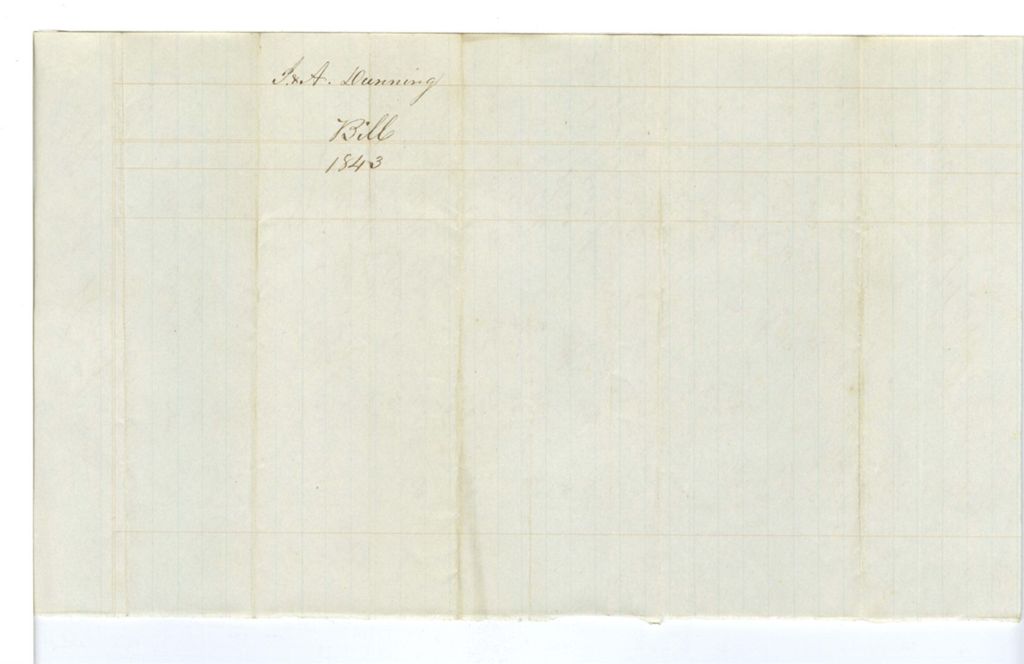 J & A. Dunning
Bill
1843